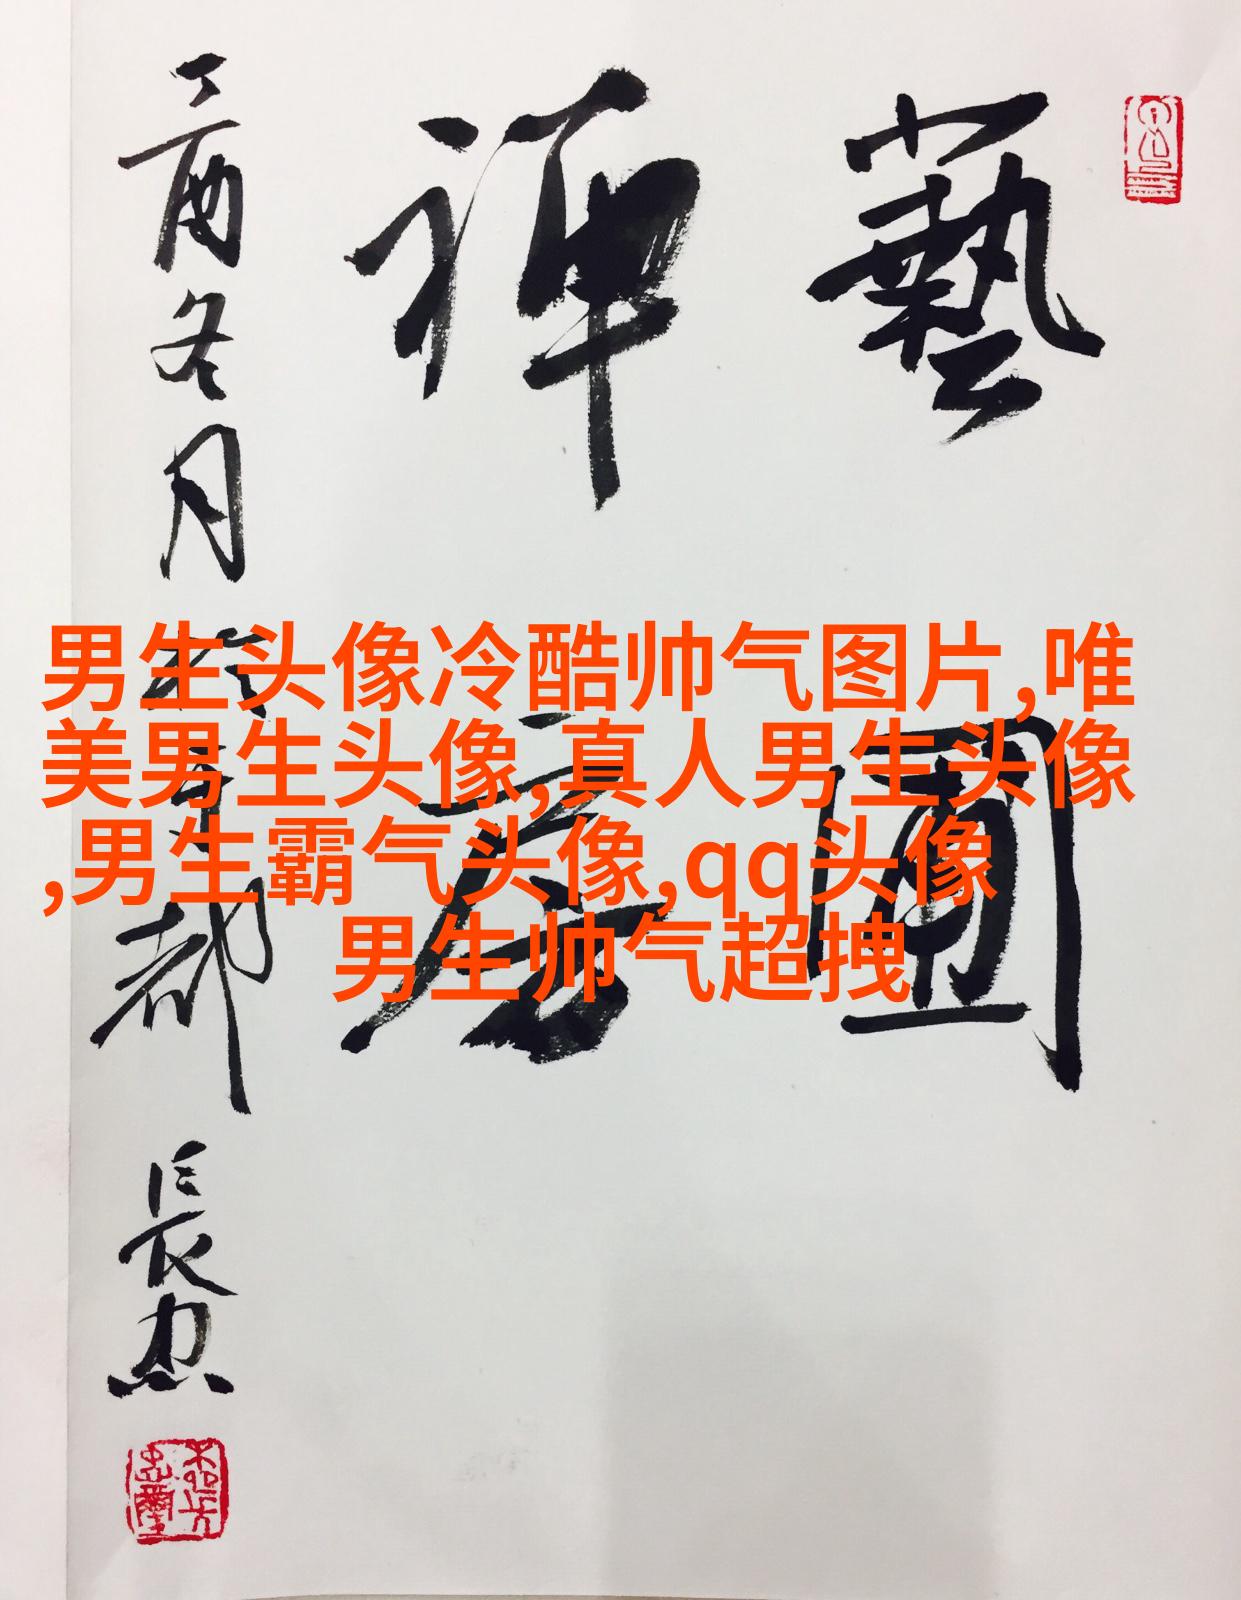 藝圃
禪房
丁酉冬月於京都
男生头像冷酷帅气图片,唯
美男生头像,真人男生头像
,男生霸气头像,qq头像
男生帅气超拽